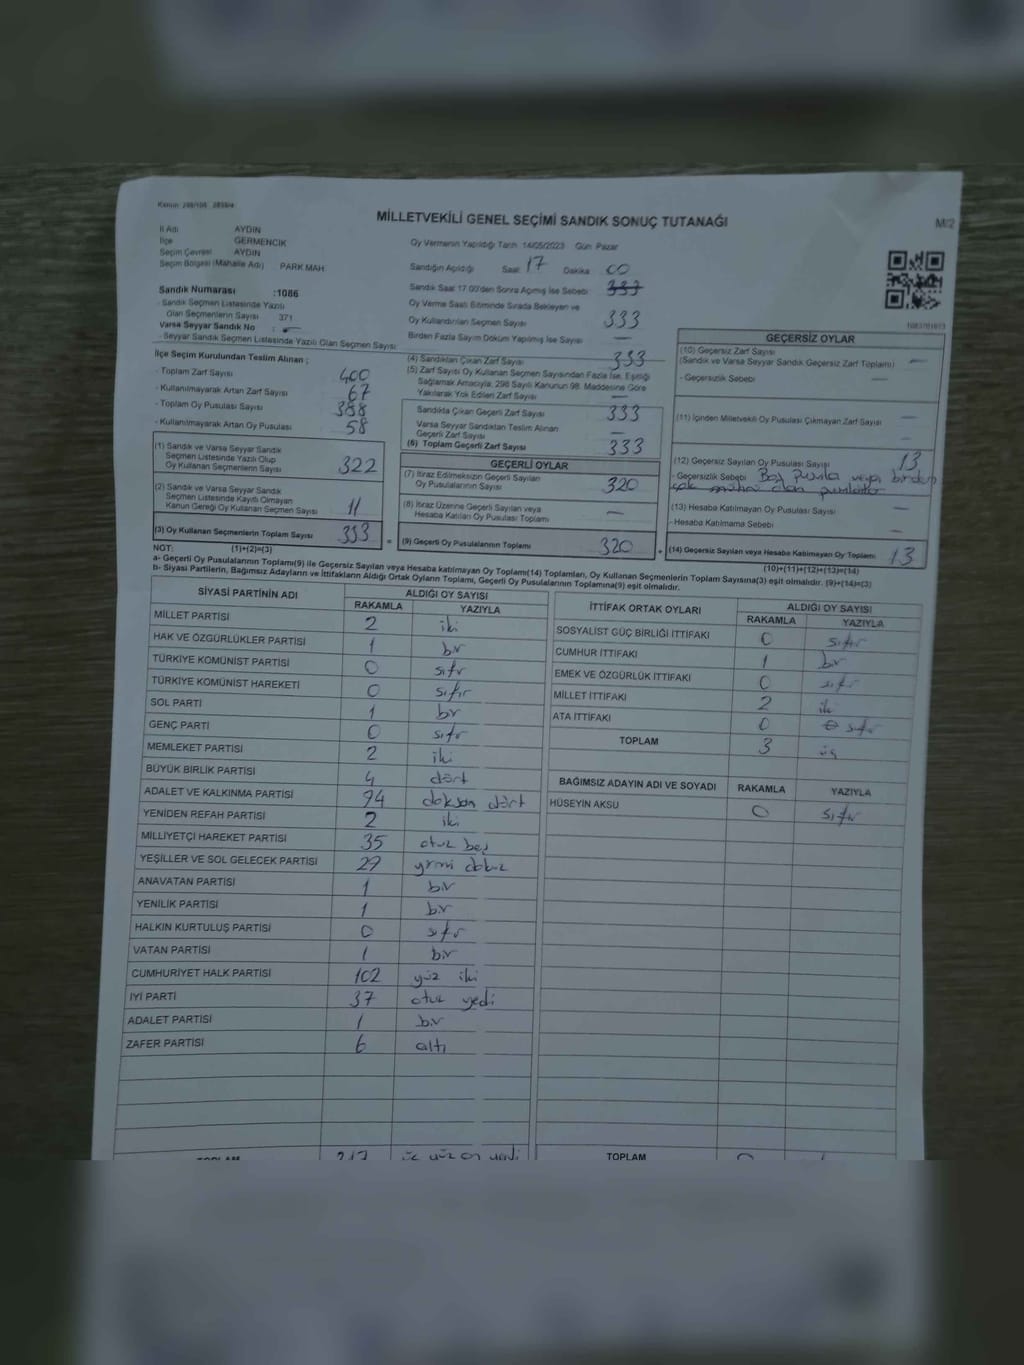 Kanun: 298/105 2839/4
MİLLETVEKİLİ GENEL SEÇİMİ SANDIK SONUÇ TUTANAĞI
M/2
İl Adı AYDIN
İlçe GERMENCİK
Seçim Çevresi AYDIN
Seçim Bölgesi (Mahalle Adı) PARK MAH.
Sandık Numarası :1086
- Sandık Seçmen Listesinde Yazılı
Olan Seçmenlerin Sayısı 371
Varsa Seyyar Sandık No : -
- Seyyar Sandık Seçmen Listesinde Yazılı Olan Seçmen Sayısı
İlçe Seçim Kurulundan Teslim Alınan ;
- Toplam Zarf Sayısı 400
- Kullanılmayarak Artan Zarf Sayısı 67
- Toplam Oy Pusulası Sayısı 388
- Kullanılmayarak Artan Oy Pusulası 58
(1) Sandık ve Varsa Seyyar Sandık
Seçmen Listesinde Yazılı Olup
Oy Kullanan Seçmenlerin Sayısı 322
(2) Sandık ve Varsa Seyyar Sandık
Seçmen Listesinde Kayıtlı Olmayan
Kanun Gereği Oy Kullanan Seçmen Sayısı 11
(3) Oy Kullanan Seçmenlerin Toplam Sayısı 333
Oy Vermenin Yapıldığı Tarih 14/05/2023 Gün: Pazar
Sandığın Açıldığı Saat 17 Dakika 00
Sandık Saat 17.00'den Sonra Açılmış İse Sebebi 333
Oy Verme Saati Bitiminde Sırada Bekleyen ve
Oy Kullandırılan Seçmen Sayısı 333
Birden Fazla Sayım Döküm Yapılmış İse Sayısı —
(4) Sandıktan Çıkan Zarf Sayısı 333
(5) Zarf Sayısı Oy Kullanan Seçmen Sayısından Fazla İse, Eşitliği
Sağlamak Amacıyla, 298 Sayılı Kanunun 98. Maddesine Göre
Yakılarak Yok Edilen Zarf Sayısı —
Sandıkta Çıkan Geçerli Zarf Sayısı 333
Varsa Seyyar Sandıktan Teslim Alınan
Geçerli Zarf Sayısı —
(6) Toplam Geçerli Zarf Sayısı 333
GEÇERLİ OYLAR
(7) İtiraz Edilmeksizin Geçerli Sayılan
Oy Pusulalarının Sayısı 320
(8) İtiraz Üzerine Geçerli Sayılan veya
Hesaba Katılan Oy Pusulası Toplamı —
= (9) Geçerli Oy Pusulalarının Toplamı 320
GEÇERSİZ OYLAR
(10) Geçersiz Zarf Sayısı
(Sandık ve Varsa Seyyar Sandık Geçersiz Zarf Toplamı) —
- Geçersizlik Sebebi —
(11) İçinden Milletvekili Oy Pusulası Çıkmayan Zarf Sayısı —
—
(12) Geçersiz Sayılan Oy Pusulası Sayısı 13
- Geçersizlik Sebebi Boş Pusula veya birden
çok mühür olan pusulalar
(13) Hesaba Katılmayan Oy Pusulası Sayısı —
- Hesaba Katılmama Sebebi —
+ (14) Geçersiz Sayılan veya Hesaba Katılmayan Oy Toplamı 13
NOT: (1)+(2)=(3) (10)+(11)+(12)+(13)=(14)
a- Geçerli Oy Pusulalarının Toplamı(9) ile Geçersiz Sayılan veya Hesaba katılmayan Oy Toplam(14) Toplamları, Oy Kullanan Seçmenlerin Toplam Sayısına(3) eşit olmalıdır. (9)+(14)=(3)
b- Siyasi Partilerin, Bağımsız Adayların ve İttifakların Aldığı Ortak Oyların Toplamı, Geçerli Oy Pusulalarının Toplamına(9) eşit olmalıdır.
SİYASİ PARTİNİN ADI ALDIĞI OY SAYISI
RAKAMLA YAZIYLA
MİLLET PARTİSİ 2 iki
HAK VE ÖZGÜRLÜKLER PARTİSİ 1 bir
TÜRKİYE KOMÜNİST PARTİSİ 0 sıfır
TÜRKİYE KOMÜNİST HAREKETİ 0 sıfır
SOL PARTİ 1 bir
GENÇ PARTİ 0 sıfır
MEMLEKET PARTİSİ 2 iki
BÜYÜK BİRLİK PARTİSİ 4 dört
ADALET VE KALKINMA PARTİSİ 94 doksan dört
YENİDEN REFAH PARTİSİ 2 iki
MİLLİYETÇİ HAREKET PARTİSİ 35 otuz beş
YEŞİLLER VE SOL GELECEK PARTİSİ 29 yirmi dokuz
ANAVATAN PARTİSİ 1 bir
YENİLİK PARTİSİ 1 bir
HALKIN KURTULUŞ PARTİSİ 0 sıfır
VATAN PARTİSİ 1 bir
CUMHURİYET HALK PARTİSİ 102 yüz iki
İYİ PARTİ 37 otuz yedi
ADALET PARTİSİ 1 bir
ZAFER PARTİSİ 6 altı
TOPLAM 317 üç yüz on yedi
İTTİFAK ORTAK OYLARI ALDIĞI OY SAYISI
RAKAMLA YAZIYLA
SOSYALİST GÜÇ BİRLİĞİ İTTİFAKI 0 sıfır
CUMHUR İTTİFAKI 1 bir
EMEK VE ÖZGÜRLÜK İTTİFAKI 0 sıfır
MİLLET İTTİFAKI 2 iki
ATA İTTİFAKI 0 sıfır
TOPLAM 3 üç
BAĞIMSIZ ADAYIN ADI VE SOYADI RAKAMLA YAZIYLA
HÜSEYİN AKSU 0 sıfır
TOPLAM 0